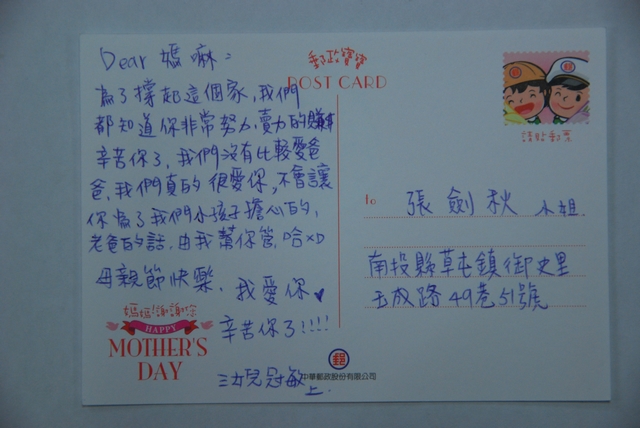 Dear 媽嘛:
為了撐起這個家,我們
都知道你非常努力,賣力的賺
辛苦你了,我們沒有比較愛爸
爸,我們真的很愛你,不會讓
你為了我們小孩子擔心的,
老爸的話,由我幫你管,哈XD
母親節快樂,我愛你♥
辛苦你了!!!!
三女兒冠敏
上.
媽媽謝謝您
HAPPY
MOTHER'S
DAY
郵政寶寶
POST CARD
請貼郵票
to
張劍秋 小姐.
南投縣草屯鎮御史里
玉成路49巷51號
郵
中華郵政股份有限公司